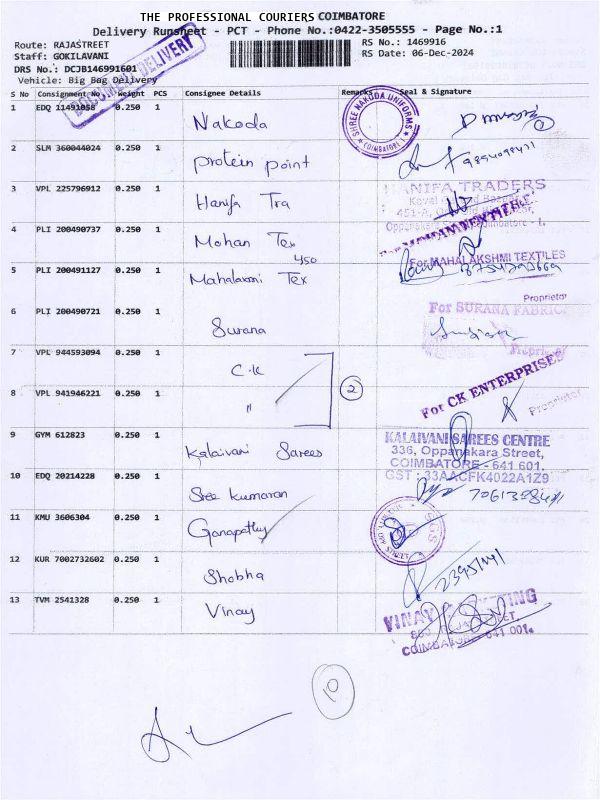 THE PROFESSIONAL COURIERS COIMBATORE
Delivery Runsheet - PCT - Phone No.:0422-3505555 - Page No.:1
Route: RAJASTREET
RS No.: 1469916
Staff: GOKILAVANI
RS Date: 06-Dec-2024
DRS No.: DCJB146991601
Vehicle: Big Bag Delivery
DOCUMENT DELIVERY
S No Consignment No Weight PCS Consignee Details Remarks Seal & Signature
1 EDQ 11491058 0.250 1 Nakoda
SHREE NAKODA UNIFORMS
* COIMBATORE *
2 SLM 360044024 0.250 1 Protein point
3 VPL 225796912 0.250 1 Hanifa Tra
HANIFA TRADERS
4 PLI 200490737 0.250 1 Mohan Tex
450
For MAHALAKSHMI TEXTILES
5 PLI 200491127 0.250 1 Mahalaxmi Tex
Proprietor
6 PLI 200490721 0.250 1 Surana
For SURANA FABRIC
7 VPL 944593094 0.250 1 C.K
8 VPL 941946221 0.250 1 "
2
For CK ENTERPRISES
Proprietor
9 GYM 612823 0.250 1 Kalaivani Sarees
KALAIVANI SAREES CENTRE
336, Oppanakara Street,
COIMBATORE - 641 601.
GST : 33AACFK4022A1Z9
10 EDQ 20214228 0.250 1 Sree Kumaran
11 KMU 3606304 0.250 1 Ganapathy
12 KUR 7002732602 0.250 1 Shobha
13 TVM 2541328 0.250 1 Vinay
10